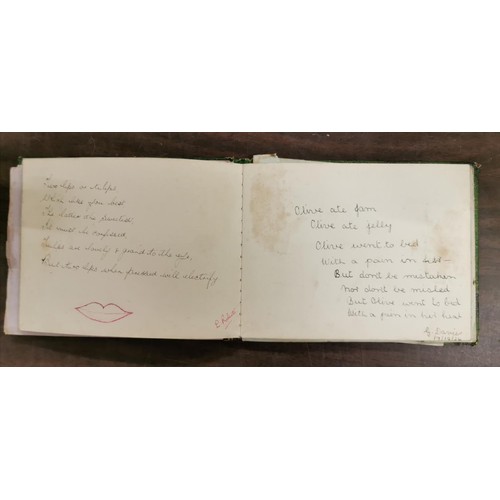 Two lips or tulips
Which do you
The latter the sweetest
It must be confessed.
Tulips are lovely & grand to the
But two lips when pressed will electrify
Clive ate jam
Clive ate jelly
Clive went to bed
With a pain in his —
But dont be mistaken
Nor dont be misled
But Clive went to bed
With a pain in his head